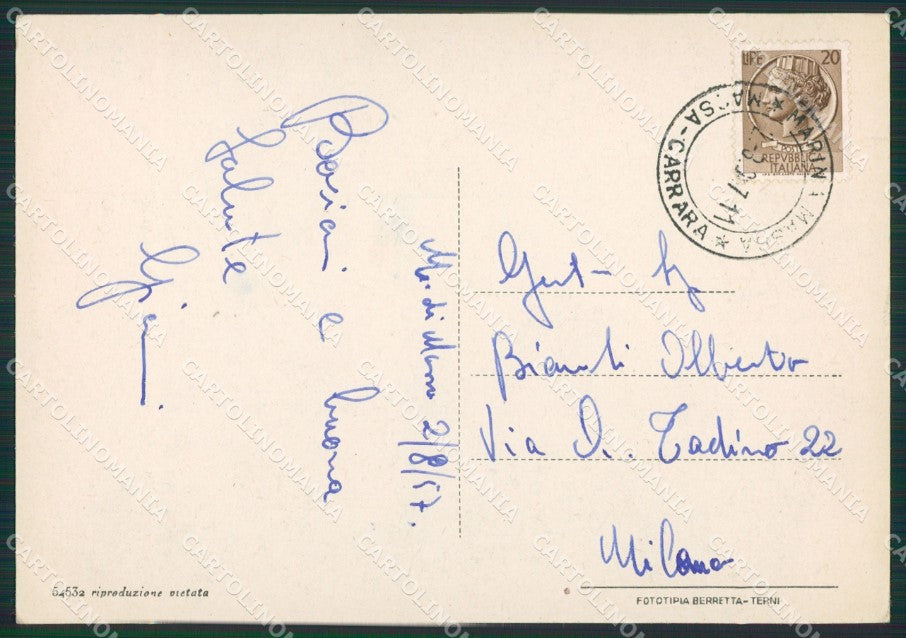 M. di Massa 2/8/57.
Bacioni e buona
salute
Gianni
LIRE 20
REPVBBLICA
ITALIANA
MARINA MASSA
MASSA-CARRARA
Gent. Sig
Bianchi Alberto
Via A. Tadino 22
Milano
54532 riproduzione vietata
FOTOTIPIA BERRETTA - TERNI
CARTOLINOMANIA